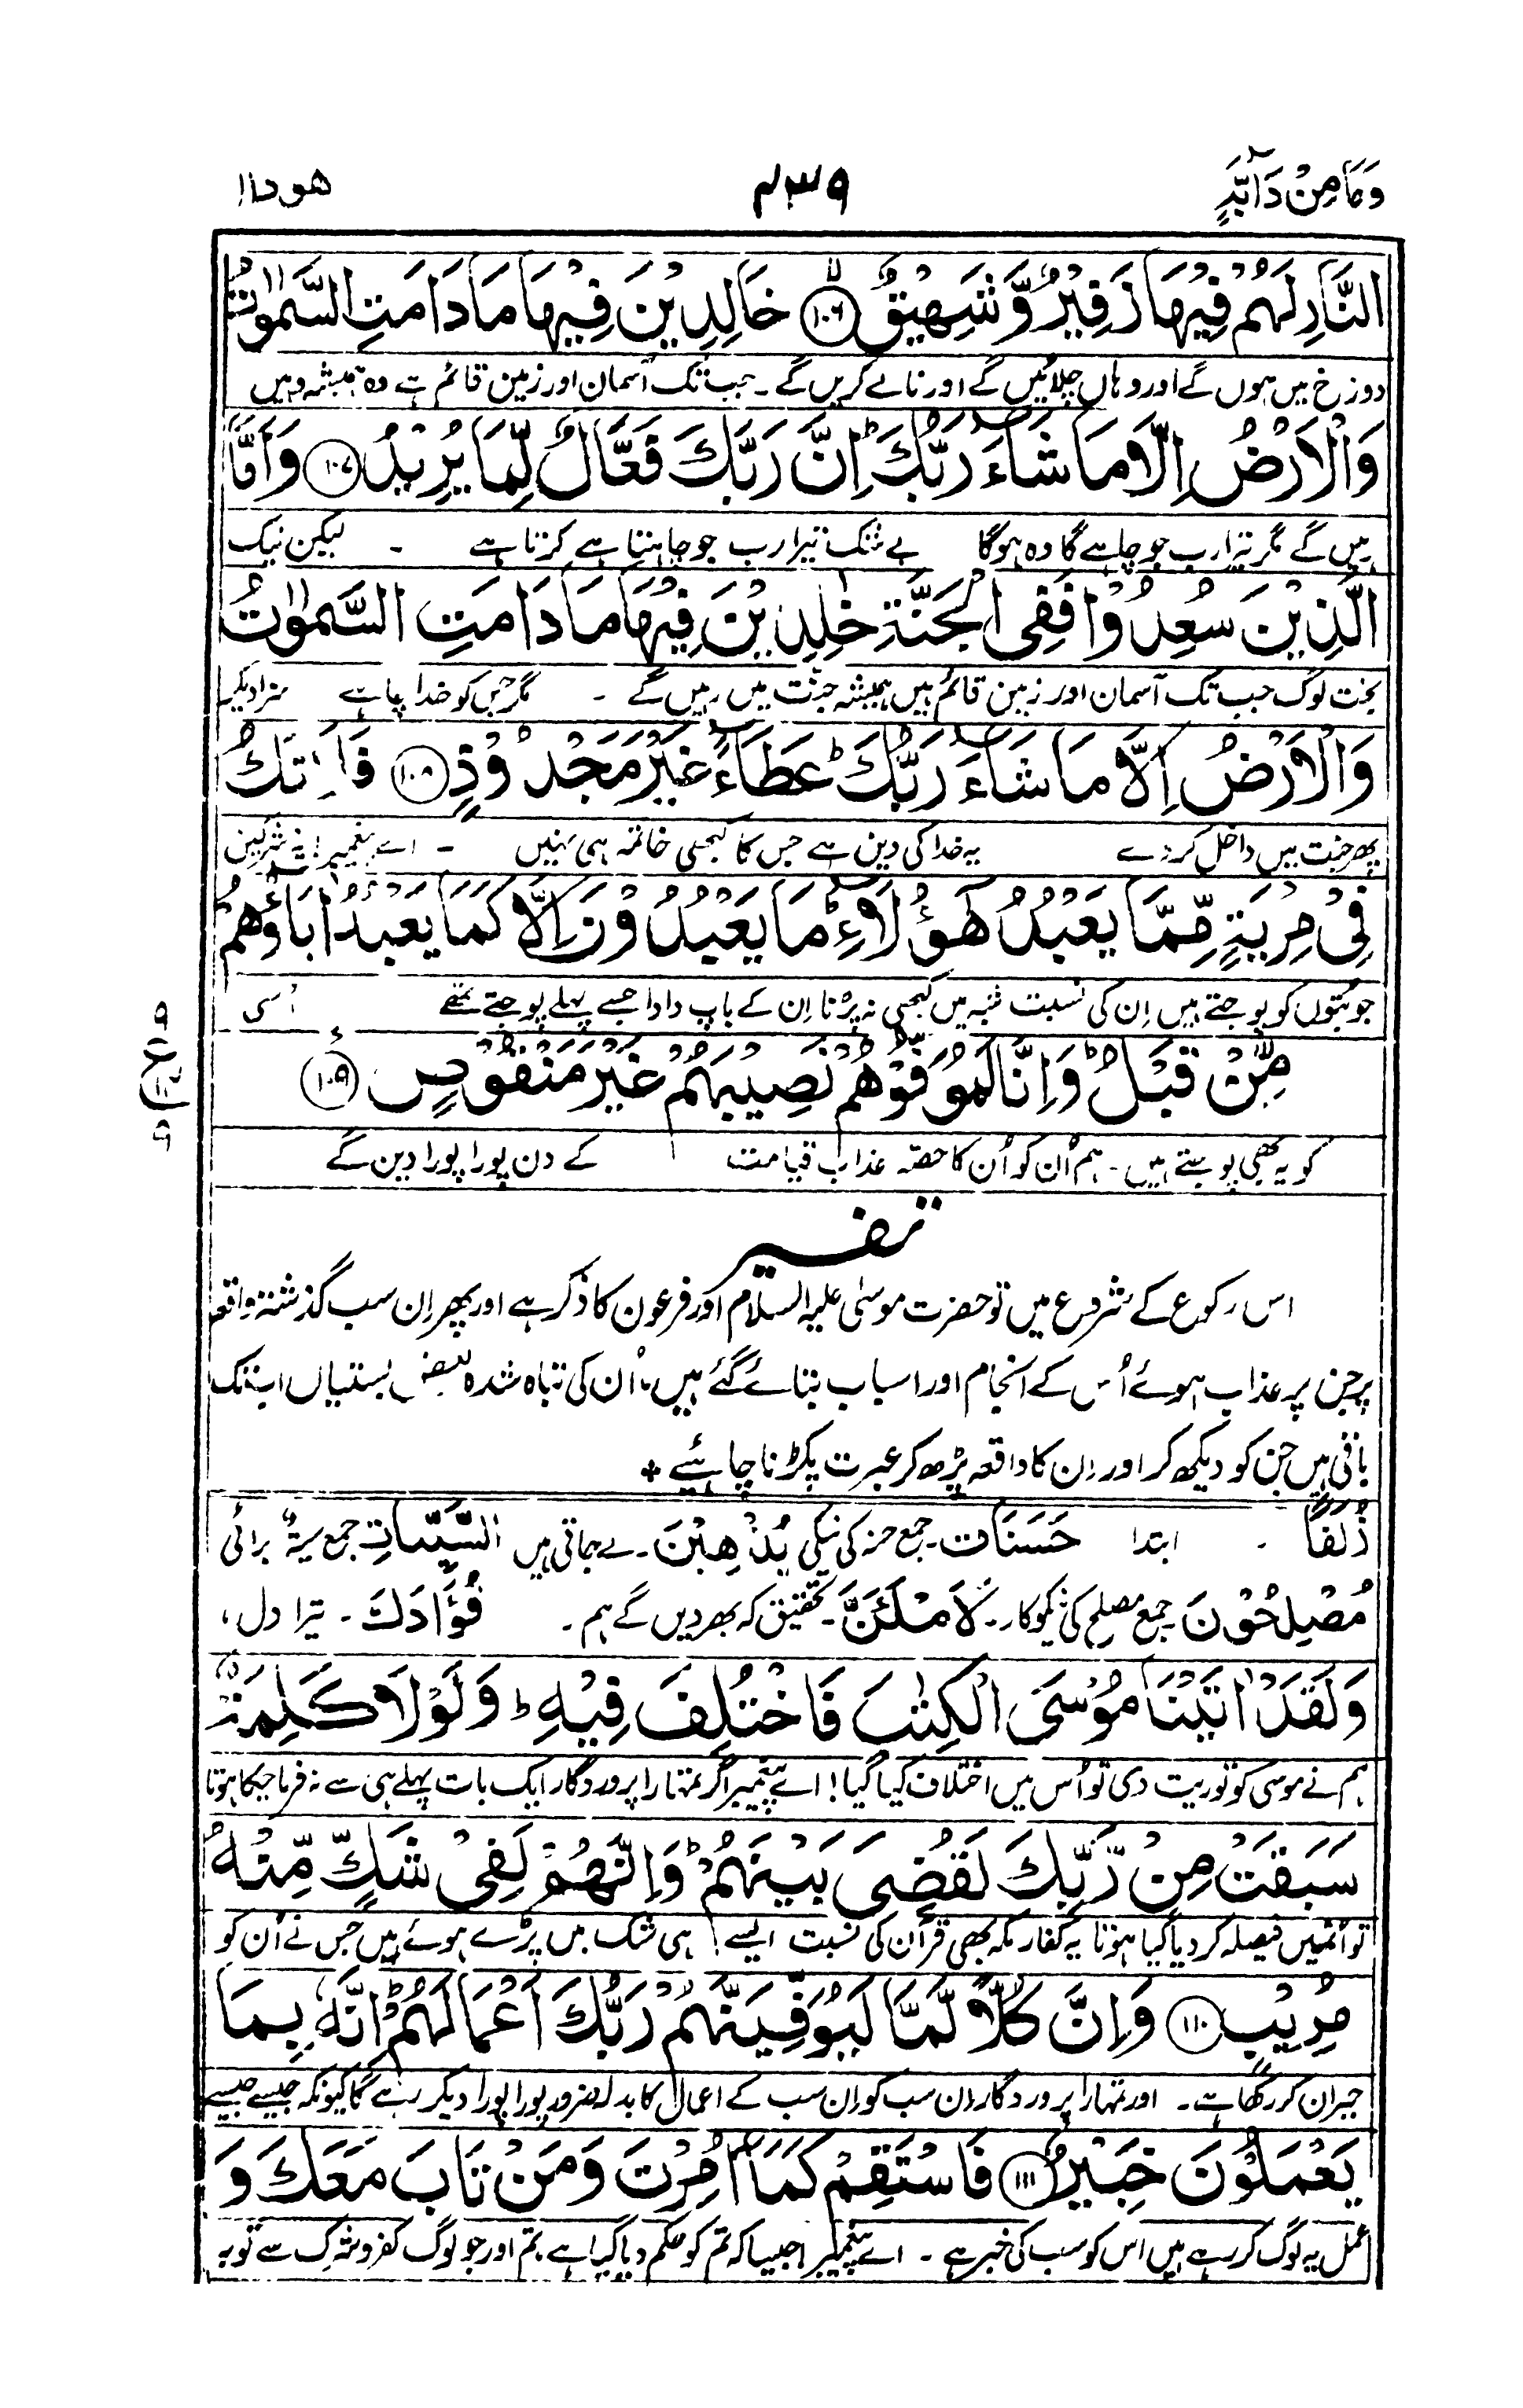 وَمَا مِنْ دَآبَّةٍ
۴۳۹
ھود ۱۱
النَّارِ لَهُمْ فِيْهَا زَفِيْرٌ وَّشَهِيْقٌ ۙ ۱۰۶ خَالِدِيْنَ فِيْهَا مَا دَامَتِ السَّمٰوٰتُ
دوزخ میں ہوں گے اور وہاں چلائیں گے اور نالے کریں گے ۔ جب تک آسمان اور زمین قائم ہے وہ ہمیشہ وہیں
وَالْاَرْضُ اِلَّا مَا شَآءَ رَبُّكَ ؕ اِنَّ رَبَّكَ فَعَّالٌ لِّمَا يُرِيْدُ ۱۰۷ وَاَمَّا
رہیں گے مگر تیرا رب جو چاہے گا وہ ہوگا بے شک تیرا رب جو چاہتا ہے کرتا ہے ۔ لیکن نیک
الَّذِيْنَ سُعِدُوْا فَفِى الْجَنَّةِ خٰلِدِيْنَ فِيْهَا مَا دَامَتِ السَّمٰوٰتُ
بخت لوگ جب تک آسمان اور زمین قائم ہیں ہمیشہ جنت میں رہیں گے ۔ مگر جس کو خدا چاہے سزا دیکر
وَالْاَرْضُ اِلَّا مَا شَآءَ رَبُّكَ ؕ عَطَآءً غَيْرَ مَجْذُوْذٍ ۱۰۸ فَلَا تَكُ
پھر جنت میں داخل کر دے یہ خدا کی دین ہے جس کا کبھی خاتمہ ہی نہیں ۔ اے پیغمبر! یہ مشرکین
فِىْ مِرْيَةٍ مِّمَّا يَعْبُدُ هٰٓؤُلَآءِ ؕ مَا يَعْبُدُوْنَ اِلَّا كَمَا يَعْبُدُ اٰبَآؤُهُمْ
جو بتوں کو پوجتے ہیں اِن کی نسبت شبہ میں کبھی نہ پڑنا اِن کے باپ دادا جسے پہلے پوجتے تھے اُسی
مِّنْ قَبْلُ ؕ وَاِنَّا لَمُوَفُّوْهُمْ نَصِيْبَهُمْ غَيْرَ مَنْقُوْصٍ ۱۰۹
۹
ع
۹
کو یہ بھی پوجتے ہیں ۔ ہم اُن کو اُن کا حصہ عذاب قیامت کے دن پورا پورا دیں گے
تفسیر
اس رکوع کے شروع میں تو حضرت موسیٰ علیہ السلام اور فرعون کا ذکر ہے اور پھر اِن سب گذشتہ واقعہ
پر جن پر عذاب ہوئے اُس کے انجام اور اسباب بتائے گئے ہیں ۔ اُن کی تباہ شدہ بعض بستیاں اب تک
باقی ہیں جن کو دیکھ کر اور اِن کا واقعہ پڑھ کر عبرت پکڑنا چاہئیے +
زُلَفًا ۔ ابتدا حَسَنَات ۔ جمع حسنہ کی نیکی يُذْهِبْنَ ۔ لے جاتی ہیں السَّيِّاٰتِ جمع سیئۃ برائی
مُصْلِحُوْنَ ۔ جمع مصلح کی نیکوکار ۔ لَاَمْلَئَنَّ ۔ تحقیق کہ بھر دیں گے ہم ۔ فُؤَادَكَ ۔ تیرا دل ،
وَلَقَدْ اٰتَيْنَا مُوْسَى الْكِتٰبَ فَاخْتُلِفَ فِيْهِ ؕ وَلَوْلَا كَلِمَةٌ
ہم نے موسیٰ کو توریت دی تو اُس میں اختلاف کیا گیا! اے پیغمبر اگر تمہارا پروردگار ایک بات پہلے ہی سے نہ فرما چکا ہوتا
سَبَقَتْ مِنْ رَّبِّكَ لَقُضِىَ بَيْنَهُمْ ؕ وَاِنَّهُمْ لَفِىْ شَكٍّ مِّنْهُ
تو انہیں فیصلہ کر دیا گیا ہوتا یہ کفار مکہ بھی قرآن کی نسبت ایسے ہی شک میں پڑے ہوئے ہیں جس نے اُن کو
مُرِيْبٍ ۱۱۰ وَاِنَّ كُلًّا لَّمَّا لَيُوَفِّيَنَّهُمْ رَبُّكَ اَعْمَالَهُمْ ؕ اِنَّهٗ بِمَا
حیران کر رکھا ہے ۔ اور تمہارا پروردگار ان سب کو اِن سب کے اعمال کا بدلہ ضرور پورا پورا دیکر رہے گا کیونکہ جیسے جیسے
يَعْمَلُوْنَ خَبِيْرٌ ۱۱۱ فَاسْتَقِمْ كَمَآ اُمِرْتَ وَمَنْ تَابَ مَعَكَ وَ
عمل یہ لوگ کر رہے ہیں اس کو سب کی خبر ہے ۔ اے پیغمبر! جیسا کہ تم کو حکم دیا گیا ہے ۔ تم اور جو لوگ کفر و شرک سے توبہ